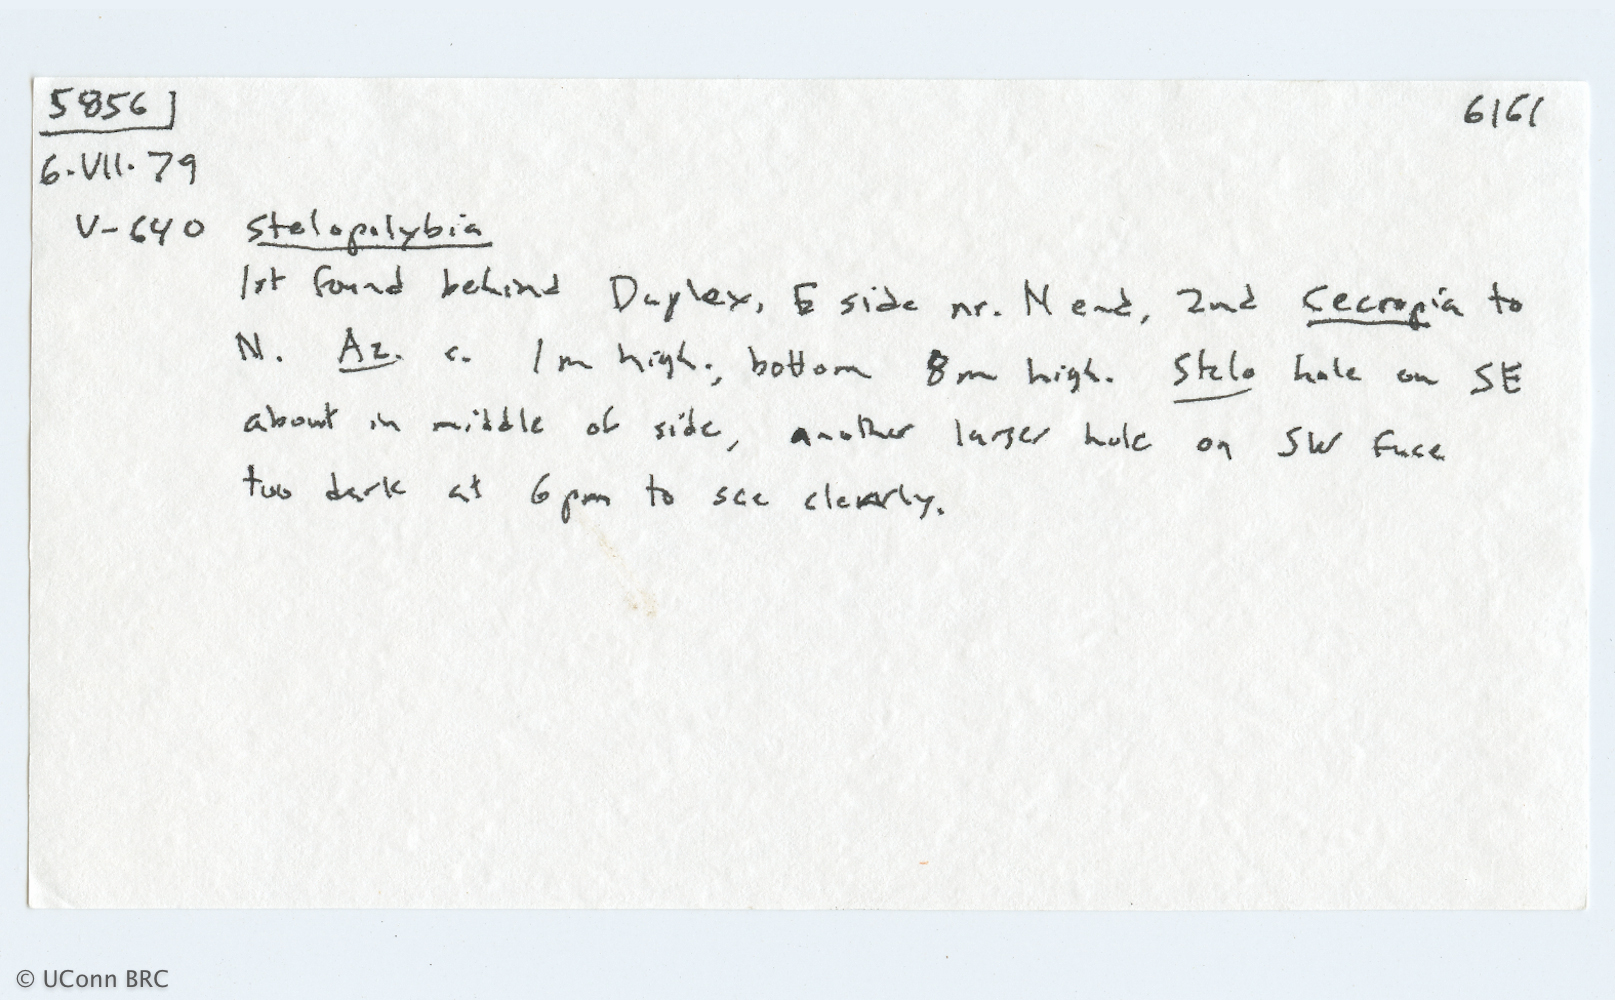 5856 6161
6.VII.79
V-640 Stelopolybia
1st found behind Duplex, E side nr. N end, 2nd Cecropia to
N. Az. c. 1m high., bottom 8m high. Stelo hole on SE
about in middle of side, another larger hole on SW face
too dark at 6pm to see clearly.
© UConn BRC